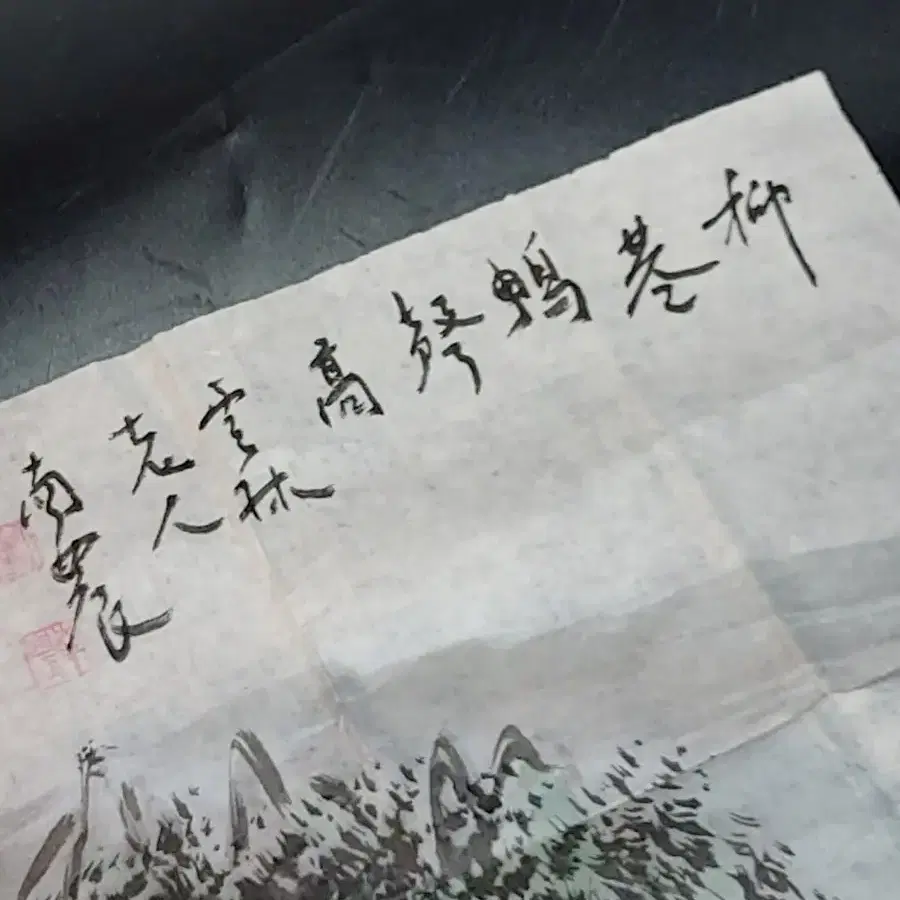 柳巷鳴聲高
雲林
老人
南農